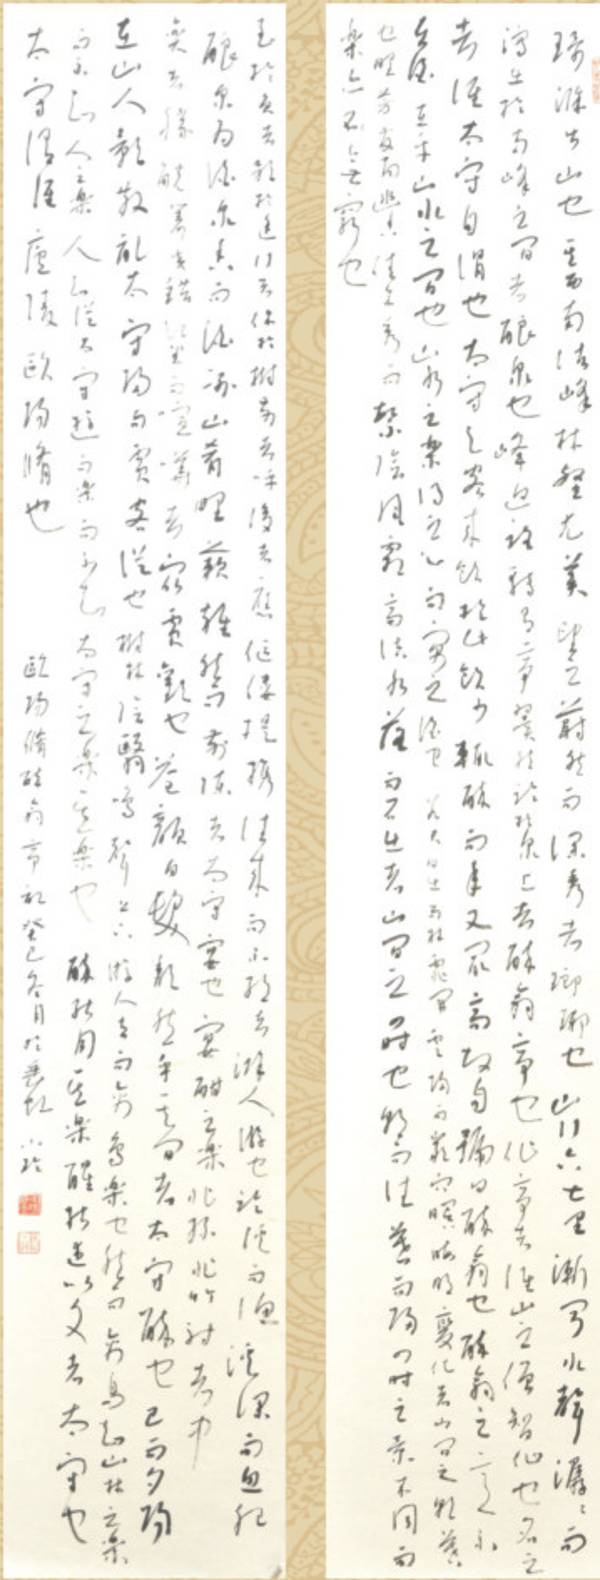 環滁皆山也其西南諸峰林壑尤美望之蔚然而深秀者瑯琊也山行六七里漸聞水聲潺潺而
瀉出於兩峰之間者釀泉也峰回路轉有亭翼然臨於泉上者醉翁亭也作亭者誰山之僧智仙也名之
者誰太守自謂也太守與客來飲於此飲少輒醉而年又最高故自號曰醉翁也醉翁之意不
在酒在乎山水之間也山水之樂得之心而寓之酒也若夫日出而林霏開雲歸而巖穴暝晦明變化者山間之朝暮
也野芳發而幽香佳木秀而繁陰風霜高潔水落而石出者山間之四時也朝而往暮而歸四時之景不同而
樂亦無窮也
至於負者歌於途行者休於樹前者呼後者應傴僂提攜往來而不絕者滁人遊也臨溪而漁溪深而魚肥
釀泉為酒泉香而酒洌山肴野蔌雜然而前陳者太守宴也宴酣之樂非絲非竹射者中
奕者勝觥籌交錯起坐而喧嘩者眾賓歡也蒼顏白髮頹然乎其間者太守醉也已而夕陽
在山人影散亂太守歸而賓客從也樹林陰翳鳴聲上下遊人去而禽鳥樂也然而禽鳥知山林之樂
而不知人之樂人知從太守遊而樂而不知太守之樂其樂也醉能同其樂醒能述以文者太守也
太守謂誰廬陵歐陽脩也
歐陽脩醉翁亭記癸巳冬月於